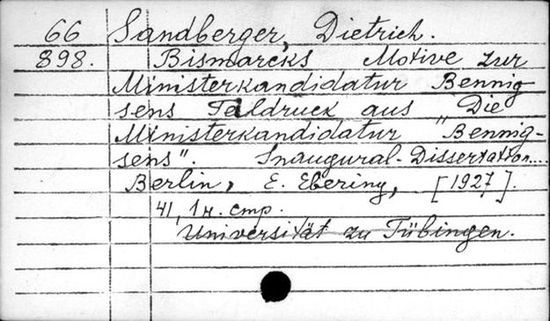 66 Sandberger, Dietrich.
898. Bismarcks Motive zur
Ministerkandidatur Bennig
sens Teildruck aus "Die
Ministerkandidatur "Bennig-
sens". Inaugural-Dissertation...
Berlin, E. Ebering, [1927].
41, 1 н. стр.
Universität zu Tübingen.